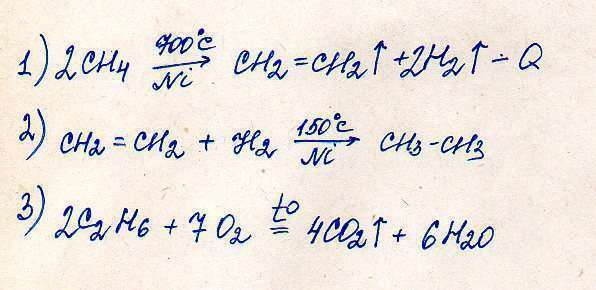 1) 2CH4 700°C/Ni → CH2=CH2↑ + 2H2↑ - Q
2) CH2=CH2 + H2 150°C/Ni → CH3-CH3
3) 2C2H6 + 7O2 t° = 4CO2↑ + 6H2O